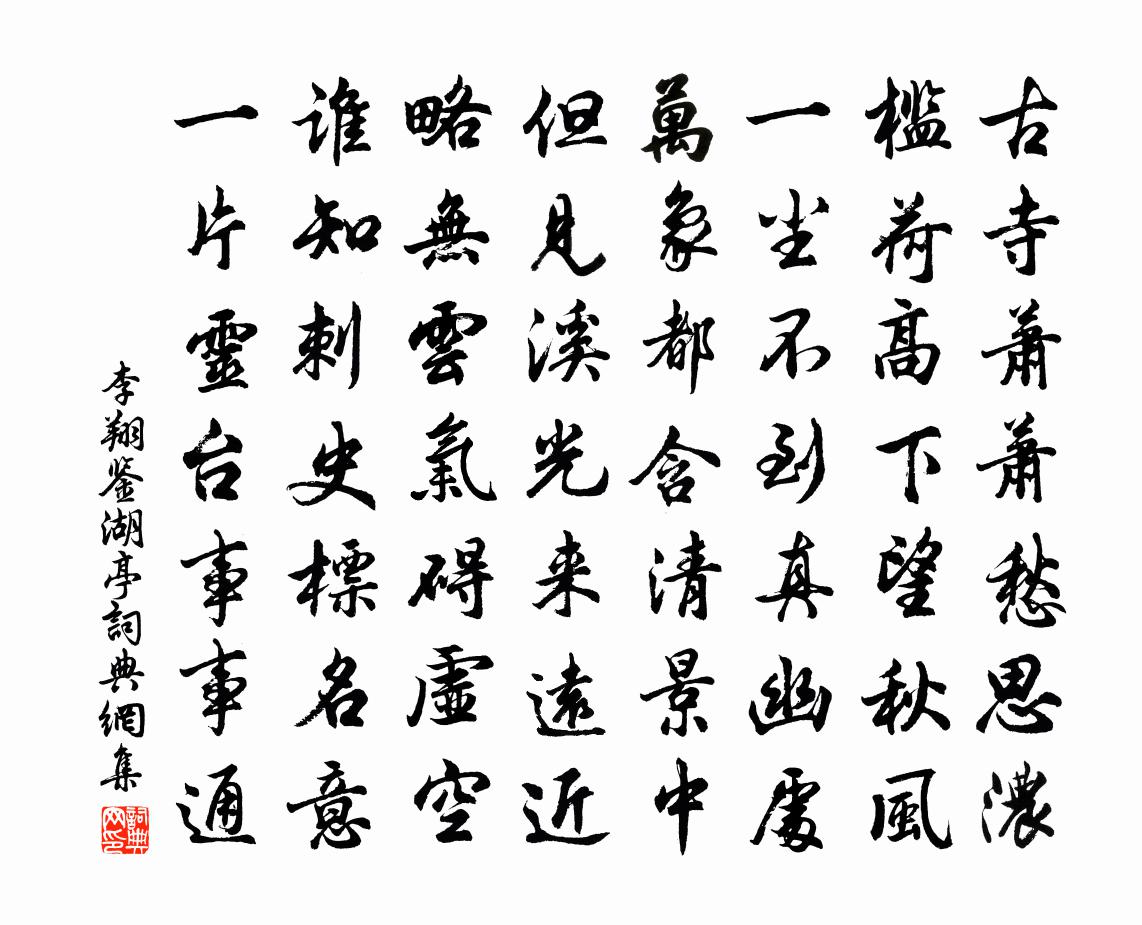 古寺蕭蕭愁思濃
檻荷高下望秋風
一尘不到真幽處
萬象都含清景中
但見溪光来遠近
略無雲氣碍虛空
谁知刺史標名意
一片靈台事事通
李翔鉴湖亭詞典網集
詞典网印